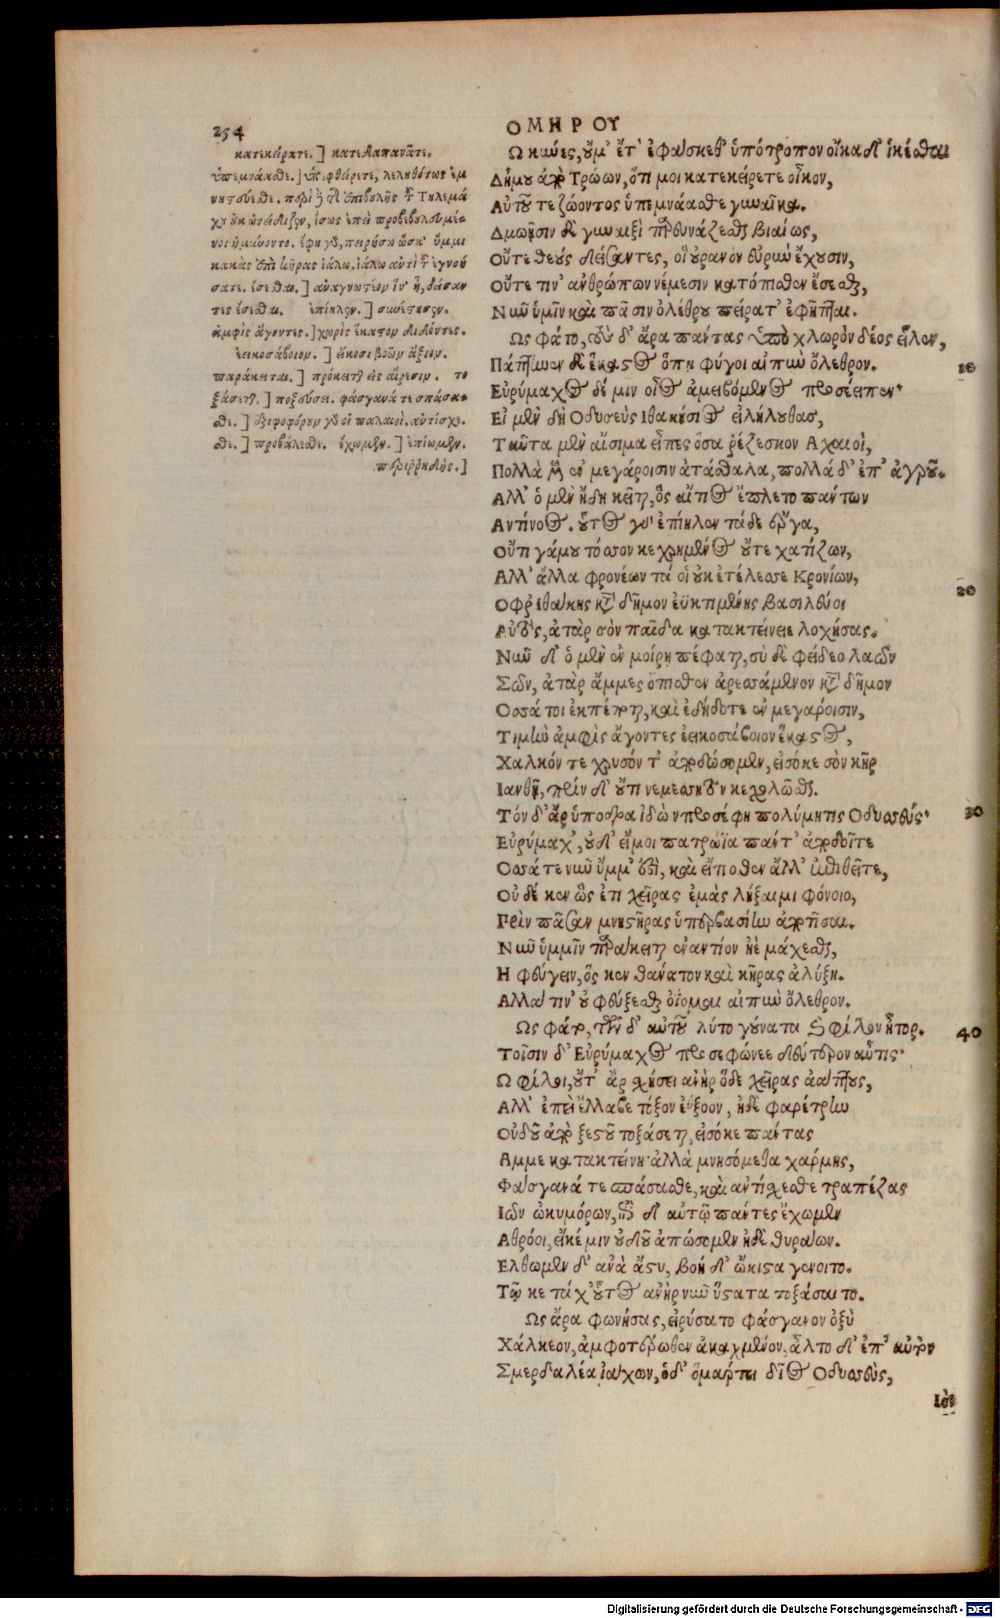 254
ΟΜΗΡΟΥ
κατεκείρατε.] κατεδαπανᾶτε.
ὑπεμνάασθε.] ὑπεφθείρετε, λεληθότως ἐμ
νηστεύεσθε. περὶ ἢ τῆς ἐπιβουλῆς τοῦ Τηλεμά
χου οὐκ ὠνείδιζεν, ἴσως ἐπεὶ προβεβουλευμέ-
νοι ἠμύνοντο. ἔφη γὰρ, πειρήσω ὥσκ' ὔμμι
κακὰς ἐπὶ κῆρας ἰάλω. ἰάλω ἀντὶ τοῦ
σατε. ἔσεσθαι.] ἀναγνωτέον ἵν' ᾖ, δείσαν
τες ἔσεσθαι. ἐπίηλεν.] συνέτησεν.
ἀμφὶς ἄγοντες.] χωρὶς ἕκαστον διδόντες.
ἐεικοσάβοιον.] εἴκοσι βοῶν ἄξιον.
παράκειται.] πρόκειται εἰς αἵρεσιν. το
ξάσεται.] τοξεύσει. φάσγανά τε σπάσα-
σθε.] ἐξιφοφόρουν γὰρ οἱ παλαιοί. ἀντίσχε-
σθε.] προβάλεσθε. ἔχωμεν.] ἐπίωμεν.
περιρρηδής.]
Ω κύνες, οὔμ' ἔτ' ἐφάσκεθ' ὑπότροπον οἴκαδ' ἱκέσθαι
Δήμου ἄπο Τρώων, ὅτι μοι κατεκείρετε οἶκον,
Αὐτοῦ τε ζώοντος ὑπεμνάασθε γυναῖκα.
Δμωῇσιν δὲ γυναιξὶ παρευνάζεσθε βιαίως,
Οὔτε θεοὺς δείσαντες, οἳ οὐρανὸν εὐρὺν ἔχουσιν,
Οὔτε τιν' ἀνθρώπων νέμεσιν κατόπισθεν ἔσεσθαι,
Νῦν ὑμῖν καὶ πᾶσιν ὀλέθρου πείρατ' ἐφῆπται.
Ως φάτο, τοὺς δ' ἄρα πάντας ὑπὸ χλωρὸν δέος εἷλεν,
Πάπτηνεν δὲ ἕκαστος ὅπη φύγοι αἰπὺν ὄλεθρον. 10
Εὐρύμαχος δέ μιν οἶος ἀμειβόμενος προσέειπεν·
Εἰ μὲν δὴ Οδυσεὺς Ιθακήσιος εἰλήλουθας,
Ταῦτα μὲν αἴσιμα εἶπες ὅσα ῥέζεσκον Αχαιοὶ,
Πολλὰ μὲν ἐν μεγάροισιν ἀτάσθαλα, πολλὰ δ' ἐπ' ἀγροῦ.
Αλλ' ὁ μὲν ἤδη κεῖται, ὃς αἴτιος ἔπλετο πάντων
Αντίνοος. οὗτος γὰρ ἐπίηλεν τάδε ἔργα,
Οὔτι γάμου τόσσον κεχρημένος οὔτε χατίζων,
Αλλ' ἄλλα φρονέων τά οἱ οὐκ ἐτέλεσσε Κρονίων,
Οφρ' Ιθάκης κατὰ δῆμον ἐϋκτιμένης βασιλεύοι 20
Αὐτὸς, ἀτὰρ σὸν παῖδα κατακτείνειε λοχήσας.
Νῦν δ' ὁ μὲν ἐν μοίρῃ πέφαται, σὺ δὲ φείδεο λαῶν
Σῶν, ἀτὰρ ἄμμες ὄπισθεν ἀρεσσάμενον κατὰ δῆμον
Οσσά τοι ἐκπέποται, καὶ ἐδήδοτε ἐν μεγάροισιν,
Τιμὴν ἀμφὶς ἄγοντες ἐεικοσάβοιον ἕκαστος,
Χαλκόν τε χρυσόν τ' ἀποδώσομεν, εἰσόκε σὸν κῆρ
Ιανθῇ, πρὶν δ' οὔτι νεμεσητὸν κεχολῶσθαι.
Τόν δ' ἄρ ὑπόδρα ἰδὼν προσέφη πολύμητις Οδυσσεύς· 30
Εὐρύμαχ', οὐδ' εἴ μοι πατρώϊα πάντ' ἀποδοῖτε
Οσσά τε νῦν ὔμμ' ἐστὶ, καὶ εἴποθεν ἄλλ' ἐπιθεῖτε,
Οὐδέ κεν ὣς ἔτι χεῖρας ἐμὰς λήξαιμι φόνοιο,
Πρὶν πᾶσαν μνηστῆρας ὑπερβασίην ἀποτῖσαι.
Νῦν ὑμμῖν παράκειται ἐναντίον ἠὲ μάχεσθαι,
Η φεύγειν, ὅς κεν θάνατον καὶ κῆρας ἀλύξῃ.
Αλλά τιν' οὐ φεύξεσθαι ὀΐομαι αἰπὺν ὄλεθρον.
Ως φάτο, τῶν δ' αὐτοῦ λύτο γούνατα καὶ φίλον ἦτορ. 40
Τοῖσιν δ' Εὐρύμαχος προσεφώνεε δεύτερον αὖτις·
Ω φίλοι, οὐτ' ἂρ σχήσει ἀνὴρ ὅδε χεῖρας ἀάπτους,
Αλλ' ἐπεὶ ἔλλαβε τόξον ἐΰξοον, ἠδὲ φαρέτρην
Οὐδοῦ ἄπο ξεστοῦ τοξάσεται, εἰσόκε πάντας
Αμμε κατακτείνῃ· ἀλλὰ μνησόμεθα χάρμης,
Φάσγανά τε σπάσασθε, καὶ ἀντίσχεσθε τραπέζας
Ιῶν ὠκυμόρων, ἐπὶ δ' αὐτῷ πάντες ἔχωμεν
Αθρόοι, εἴκέ μιν οὐδοῦ ἀπώσομεν ἠδὲ θυράων.
Ελθωμεν δ' ἀνὰ ἄστυ, βοὴ δ' ὤκιστα γένοιτο.
Τῷ κε τάχ' οὗτος ἀνὴρ νῦν ὕστατα τοξάσαιτο.
Ως ἄρα φωνήσας, εἰρύσατο φάσγανον ὀξὺ
Χάλκεον, ἀμφοτέρωθεν ἀκαχμένον, ἆλτο δ' ἐπ' αὐτὸν
Σμερδαλέα ἰάχων, ὁ δ' ὁμαρτῇ δῖος Οδυσσεὺς,
Ιὸν
Digitalisierung gefördert durch die Deutsche Forschungsgemeinschaft - DFG